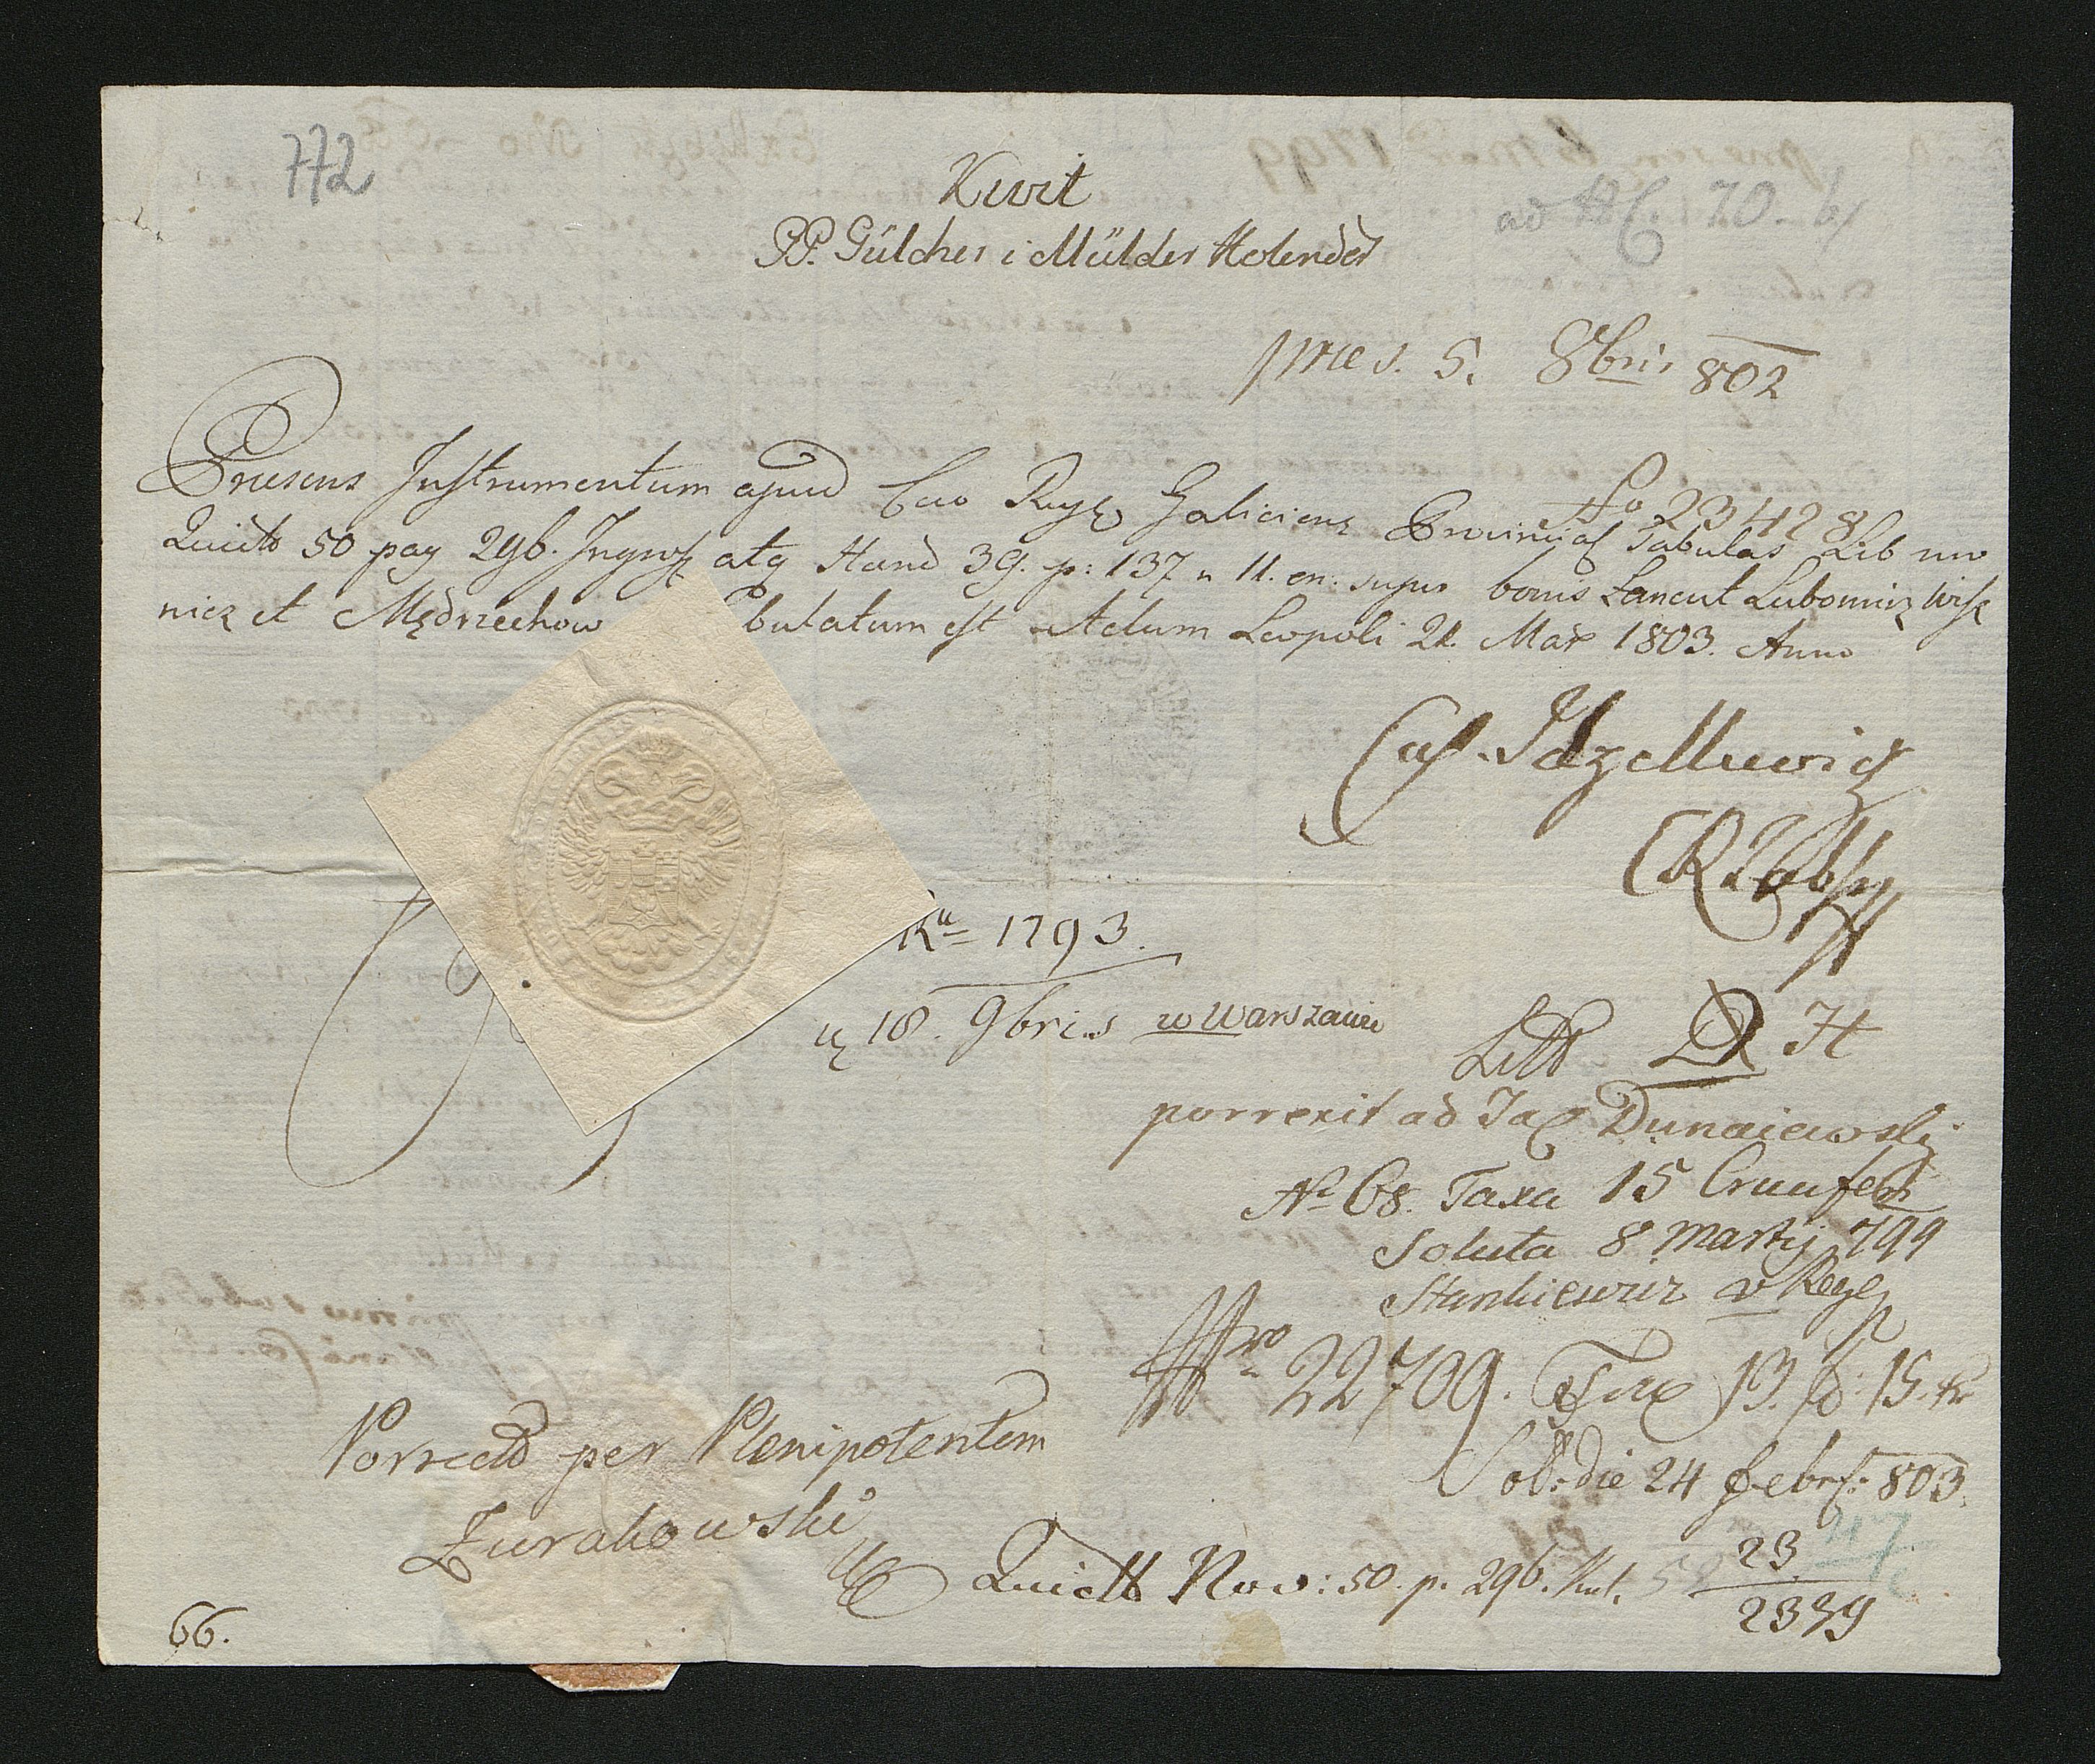 772
Kwit
PP. Gülcher i Mülder Holendes
ad 70. b/
praes. 5. 8bris 802
No 23428
Praesens Instrumentum apud Caeo Regę Galiciens Provinciaſ Tabulas Lib nov
Quiets 50 pag 296. Ingroſ atq Hand 39. p: 137 n 11. on. super bonis Lancut Lubomirz Wiſ
nicz et Mędrzechow bulatum eſt Actum Leopoli 21. Mar 1803. Anno
Caſ.
Ru 1793.
18. 9bris w Warszawie
Litt D H
porrexit ad Dunaiewski
No 68. Taxa 15 Cruciferi
Soluta 8 Martij 799
Stankiewicz
Nro 22709. Tax 13. f 15. kr
Sol: die 24 Febr: 803.
Porrectũ per Plenipotentem
Zurakowski
Quiett Nov: 50. p. 296. 58 23 47
2339
66.